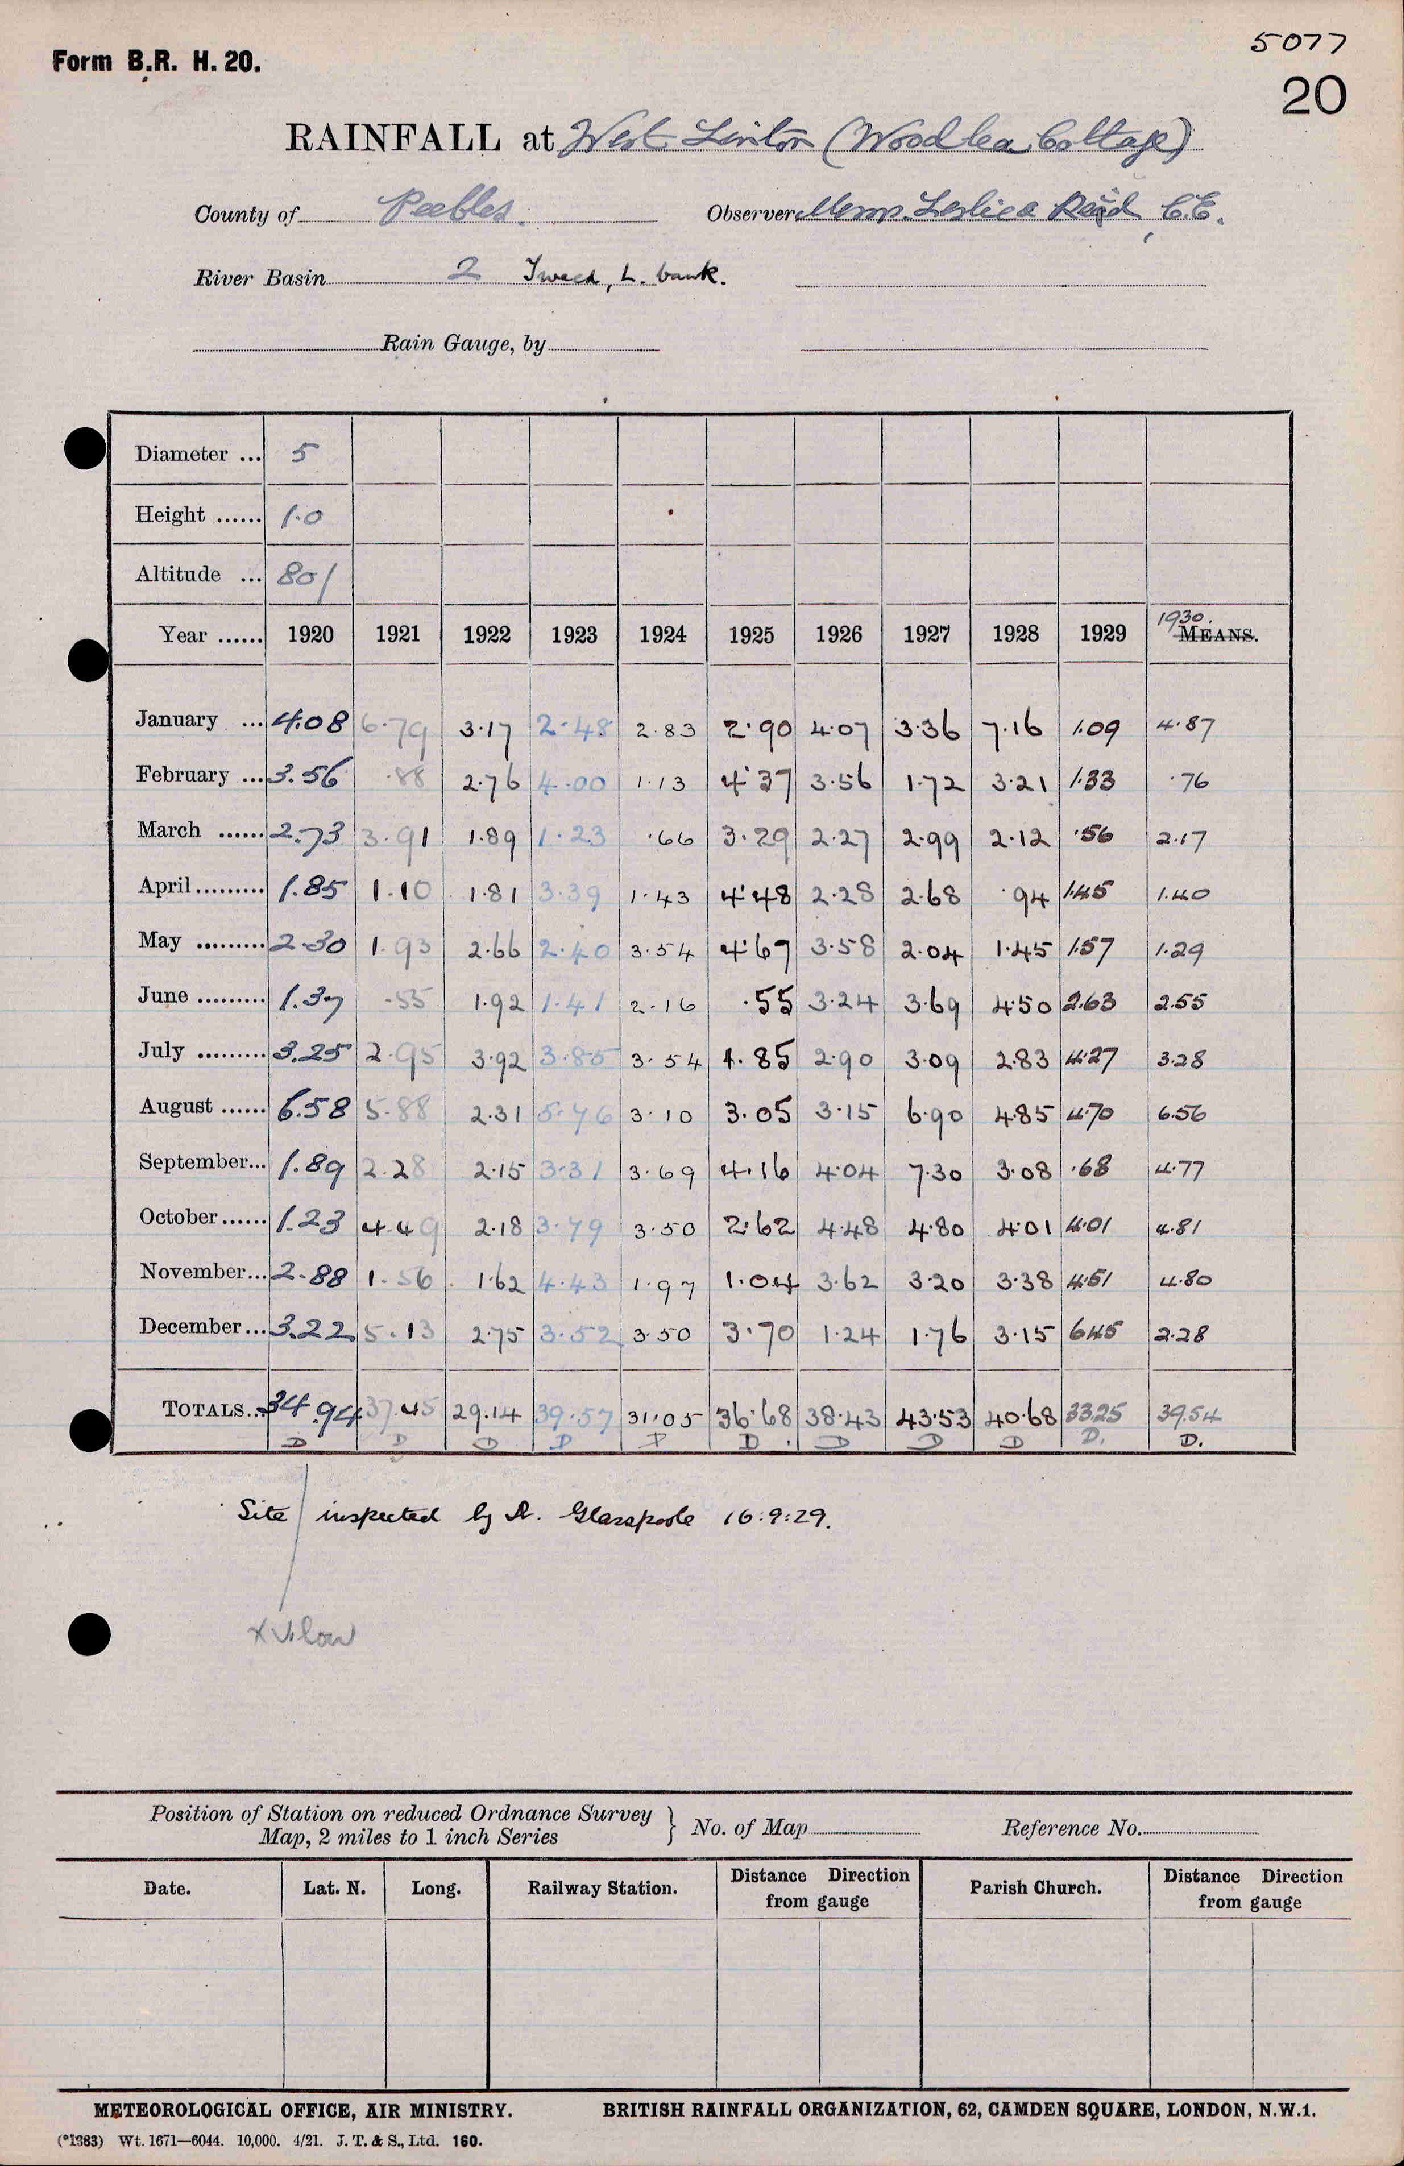 Form B.R. H. 20.
5077
20
RAINFALL at West Linton (Woodlea Cottage)
County of Peebles. Observer Messrs. Leslie & Reid, C.E.
River Basin 2 Tweed, L. bank.
Rain Gauge, by
Diameter ... 5
Height ...... 1.0
Altitude ... 801
Year ...... 1920 1921 1922 1923 1924 1925 1926 1927 1928 1929 1930. MEANS.
January ... 4.08 6.79 3.17 2.48 2.83 2.90 4.07 3.36 7.16 1.09 4.87
February ... 3.56 .88 2.76 4.00 1.13 4.37 3.56 1.72 3.21 1.33 .76
March ...... 2.73 3.91 1.89 1.23 .66 3.29 2.27 2.99 2.12 .56 2.17
April......... 1.85 1.10 1.81 3.39 1.43 4.48 2.28 2.68 .94 1.45 1.40
May ......... 2.30 1.93 2.66 2.40 3.54 4.67 3.58 2.04 1.45 1.57 1.29
June ......... 1.37 .55 1.92 1.41 2.16 .55 3.24 3.69 4.50 2.63 2.55
July ......... 3.25 2.95 3.92 3.85 3.54 1.85 2.90 3.09 2.83 4.27 3.28
August ...... 6.58 5.88 2.31 5.76 3.10 3.05 3.15 6.90 4.85 4.70 6.56
September... 1.89 2.28 2.15 3.31 3.69 4.16 4.04 7.30 3.08 .68 4.77
October...... 1.23 4.49 2.18 3.79 3.50 2.62 4.48 4.80 4.01 4.01 4.81
November... 2.88 1.56 1.62 4.43 1.97 1.04 3.62 3.20 3.38 4.51 4.80
December... 3.22 5.13 2.75 3.52 3.50 3.70 1.24 1.76 3.15 6.45 2.28
TOTALS... 34.94 37.45 29.14 39.57 31.05 36.68 38.43 43.53 40.68 33.25 39.54
D D D D D D D D D D. D.
Site inspected by A. Glasspoole 16:9:29.
Position of Station on reduced Ordnance Survey
Map, 2 miles to 1 inch Series } No. of Map Reference No.
Date. Lat. N. Long. Railway Station. Distance Direction from gauge Parish Church. Distance Direction from gauge
METEOROLOGICAL OFFICE, AIR MINISTRY. BRITISH RAINFALL ORGANIZATION, 62, CAMDEN SQUARE, LONDON, N.W.1.
(*1383) Wt. 1671—6044. 10,000. 4/21. J. T. & S., Ltd. 160.